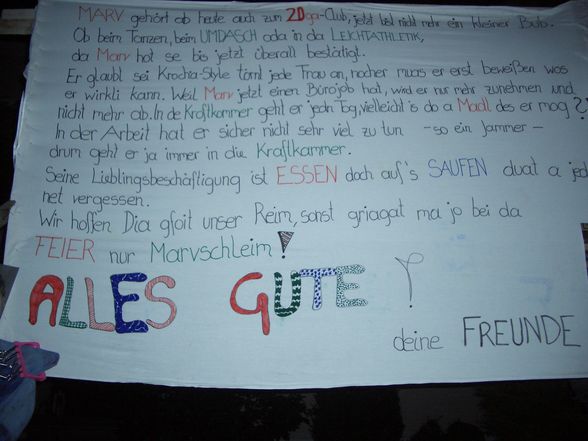 MARV gehört ab heute auch zum 20ga-Club, jetzt is er nicht mehr ein kleiner Bub.
Ob beim Tanzen, beim UMDASCH oda in da LEICHTATHLETIK,
da Marv hot se bis jetzt überall bestätigt.
Er glaubt sei Krocha-Style törnt jede Frau an, nocher muas er erst beweißen wos
er wirkli kann. Weil Marv jetzt einen Bürojob hat, wird er nur mehr zunehmen und
nicht mehr ob. In de Kraftkammer geht er jedn Tog, vielleicht is do a Madl des er mog?
In der Arbeit hat er sicher nicht sehr viel zu tun - so ein Jammer -
drum geht er ja immer in die Kraftkammer.
Seine Lieblingsbeschäftigung ist ESSEN doch auf's SAUFEN duat a jed
net vergessen.
Wir hoffen Dia gfoit unser Reim, sonst griagat ma jo bei da
FEIER nur Marvschleim!
ALLES GUTE!
deine FREUNDE